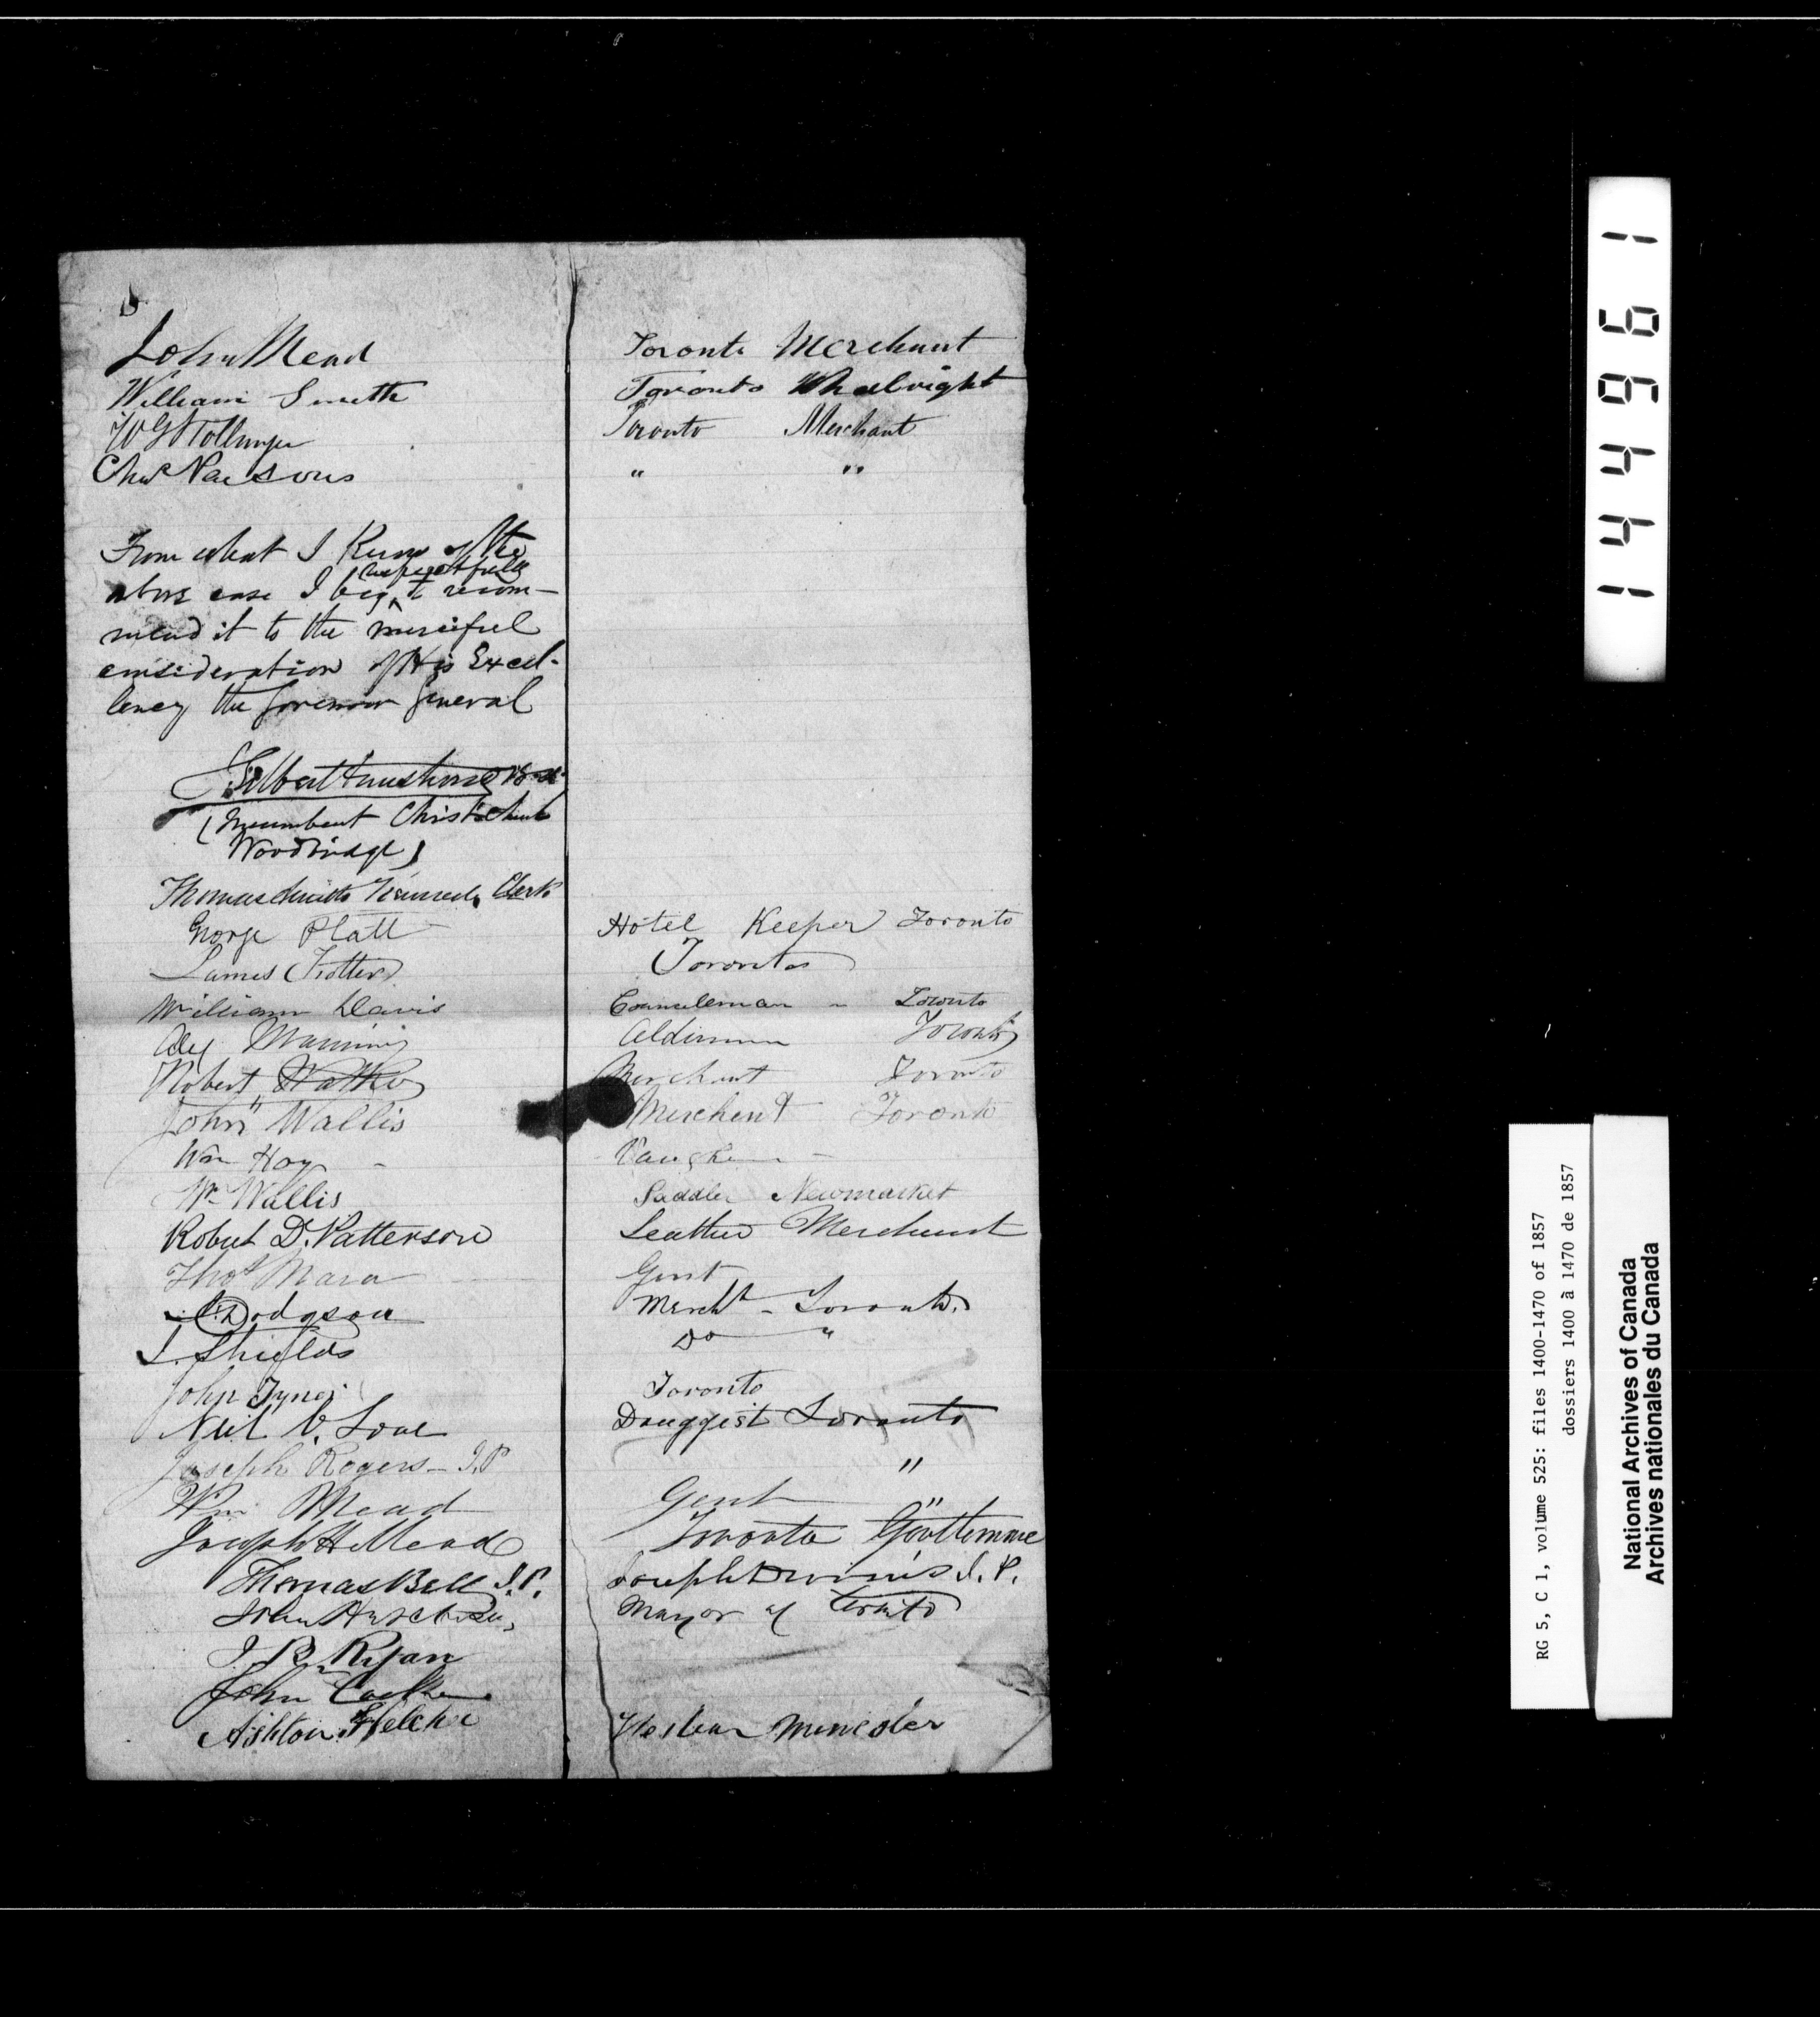 John Mead Toronto Merchant
William Smith Toronto Whelright
Toronto Merchant
Chas Parsons " "
From what I know of the
above case I beg respectfully to recom-
mend it to the merciful
consideration of His Excel-
lency the Governor General
(Incumbent Christ's Church
Woodbridge)
Thomas Smith Kennedy Clerk
George Platt Hotel Keeper Toronto
James Trotter Toronto
William Davis Councilman - Toronto
Alex Manning Alderman Toronto
Robert Walker Merchant Toronto
John Wallis Merchent Toronto
Wm Hay - Vaughan -
Wm Wallis Saddler Newmarket
Robert D. Patterson Leather Merchant
Thos Mara Gent
Dodgson Mercht - Toronto.
J. Shields Do "
John Tyner Toronto
Neil C. Love Druggist Toronto
Joseph Rogers - J.P "
Wm Mead Gent "
Joseph H Mead Toronto
Thomas Bell J.P. J.P.
John Hutchison, Mayor of Toronto
J. B. Ryan
John
Ashton Fletcher Weslean Minester
144961
RG 5, C 1, volume 525: files 1400-1470 of 1857
dossiers 1400 à 1470 de 1857
National Archives of Canada
Archives nationales du Canada